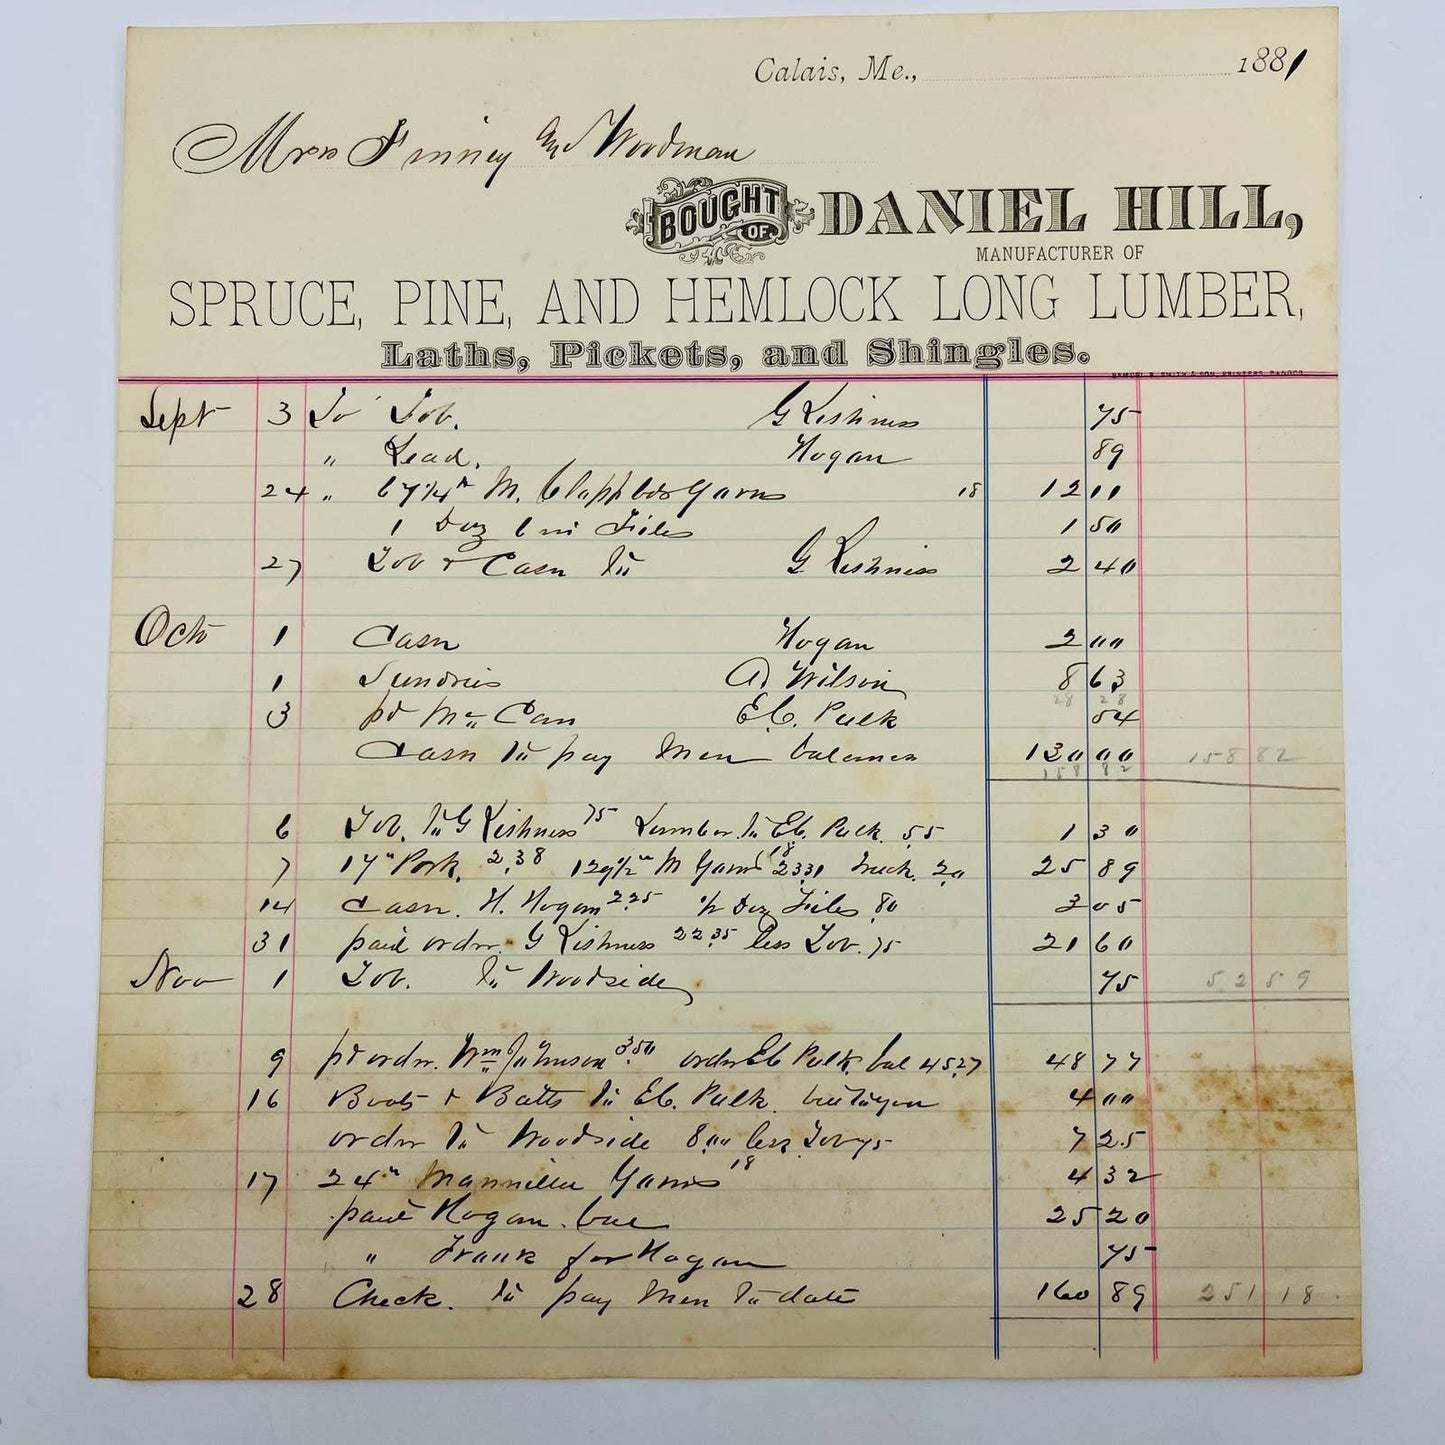 Calais, Me., 1881
Mrss Finney and Woodman
BOUGHT OF DANIEL HILL,
MANUFACTURER OF
SPRUCE, PINE, AND HEMLOCK LONG LUMBER,
Laths, Pickets, and Shingles.
SAMUEL S. SMITH & SON, PRINTERS, BANGOR.
Sept 3 To Tob. G Kishniss 75
" Lead. Hogan 89
24 " 67 1/4 M. 18 12 11
1 Doz 6 in Files 1 50
27 Tob & Cash to G Kishniss 2 40
Octo 1 Cash Hogan 2 00
1 Sundries A Wilson 8 63
28 28
3 pd Mc Can Eb. Pulk 54
Cash to pay Men balances 130 00 158 82
158 82
6 Tob. to G Kishniss 75 Lumber to Eb. Pulk. 55 1 30
7 17 " Pork. 2.38 129 1/2 " M Yarns 18 23.31 Truck. 20 25 89
14 Cash. H. Hogan 2.25 1/2 Doz Files 80 3 05
31 paid order G Kishniss 22.35 less Tob. 75 21 60
Nov 1 Tob. to Woodside 75 52 59
9 pd order. Wm Johnson 3.50 order Eb Pulk. bal 45.27 48 77
16 Boots & Batts to Eb. Pulk. 4 00
order to Woodside 8.00 less Tob 75 7 25
17 24 " Mannilla Yarns 18 4 32
paid Hogan. bal 25 20
" Frank for Hogan 75
28 Check. to pay Men to date 160 89 251 18